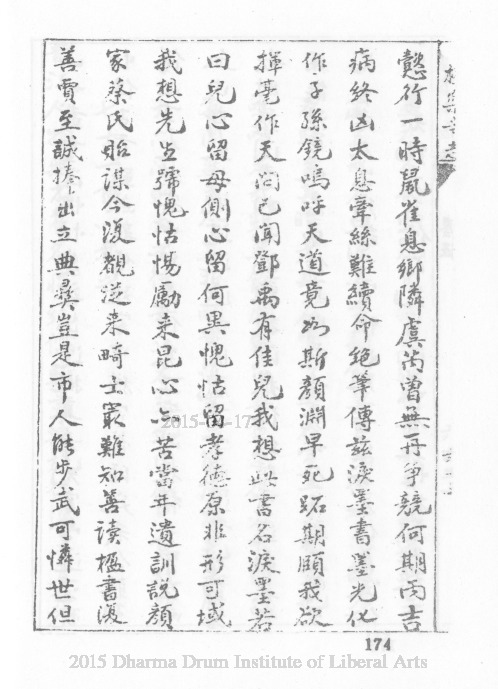 懿行一時鼠雀息鄉隣虞芮曾無再爭競何期丙吉
病終凶太息牽絲難續命絕筆傳茲淚墨書墨光化
作子孫鏡嗚呼天道竟如斯顏淵早死跖期頤我欲
揮毫作天問已聞鄧禹有佳兒我想此書名淚墨若
曰兒心留母側心留何異愧怙留孝德原非形可域
我想先生號愧怙惕勵来昆心亦苦當年遺訓說顏
家蔡氏貽謀今復覩從来畸士最難知善读楹書復
善賈至誠捧出立典彝豈是市人能步武可憐世但
174
2015 Dharma Drum Institute of Liberal Arts